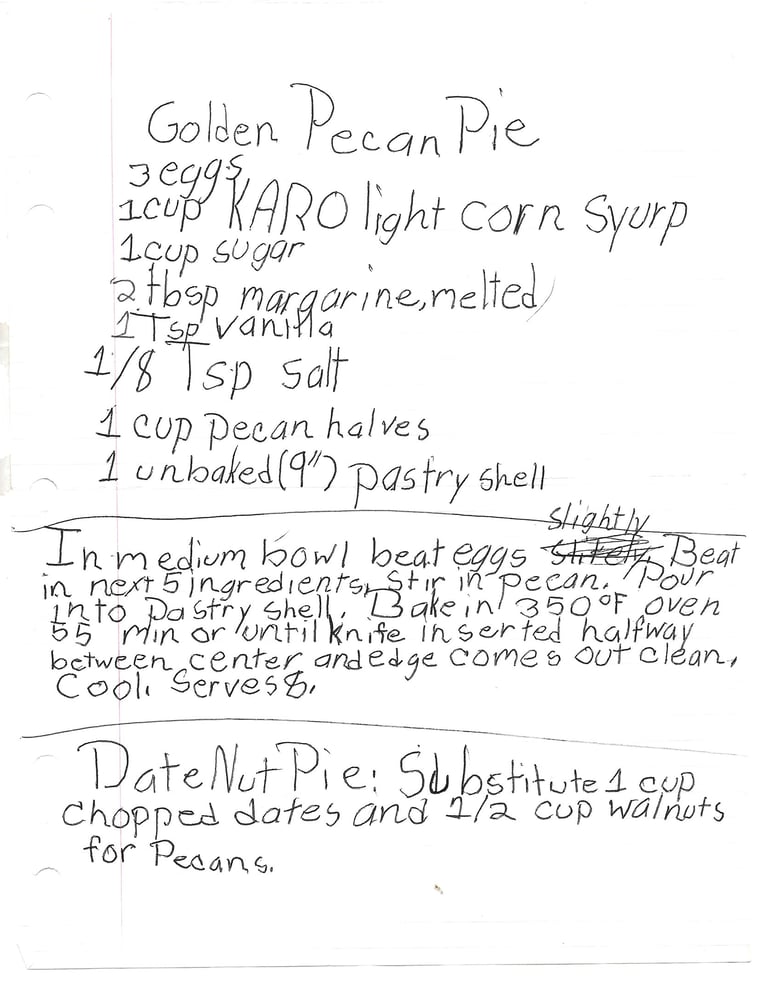 Golden Pecan Pie
3 eggs
1 cup KARO light corn syurp
1 cup sugar
2 tbsp margarine, melted
1 Tsp vanilla
1/8 Tsp salt
1 cup pecan halves
1 unbaked (9") pastry shell
slightly
In medium bowl beat eggs Beat
in next 5 ingredients, Stir in pecan. Pour
into pastry shell. Bake in 350°F oven
55 min or until knife inserted halfway
between center and edge comes out clean.
Cool. Serves 8.
Date Nut Pie: Substitute 1 cup
chopped dates and 1/2 cup walnuts
for Pecans.